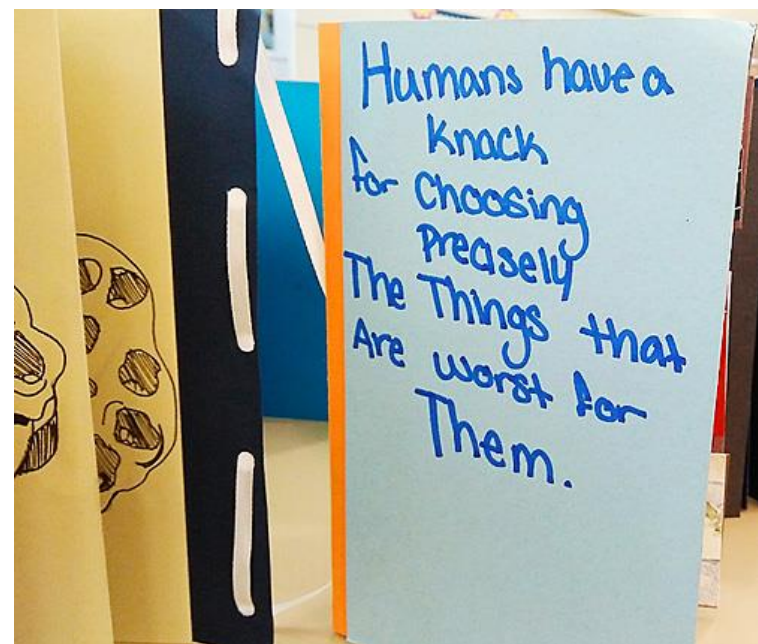 Humans have a
knack
for Choosing
precisely
The Things that
Are worst for
Them.